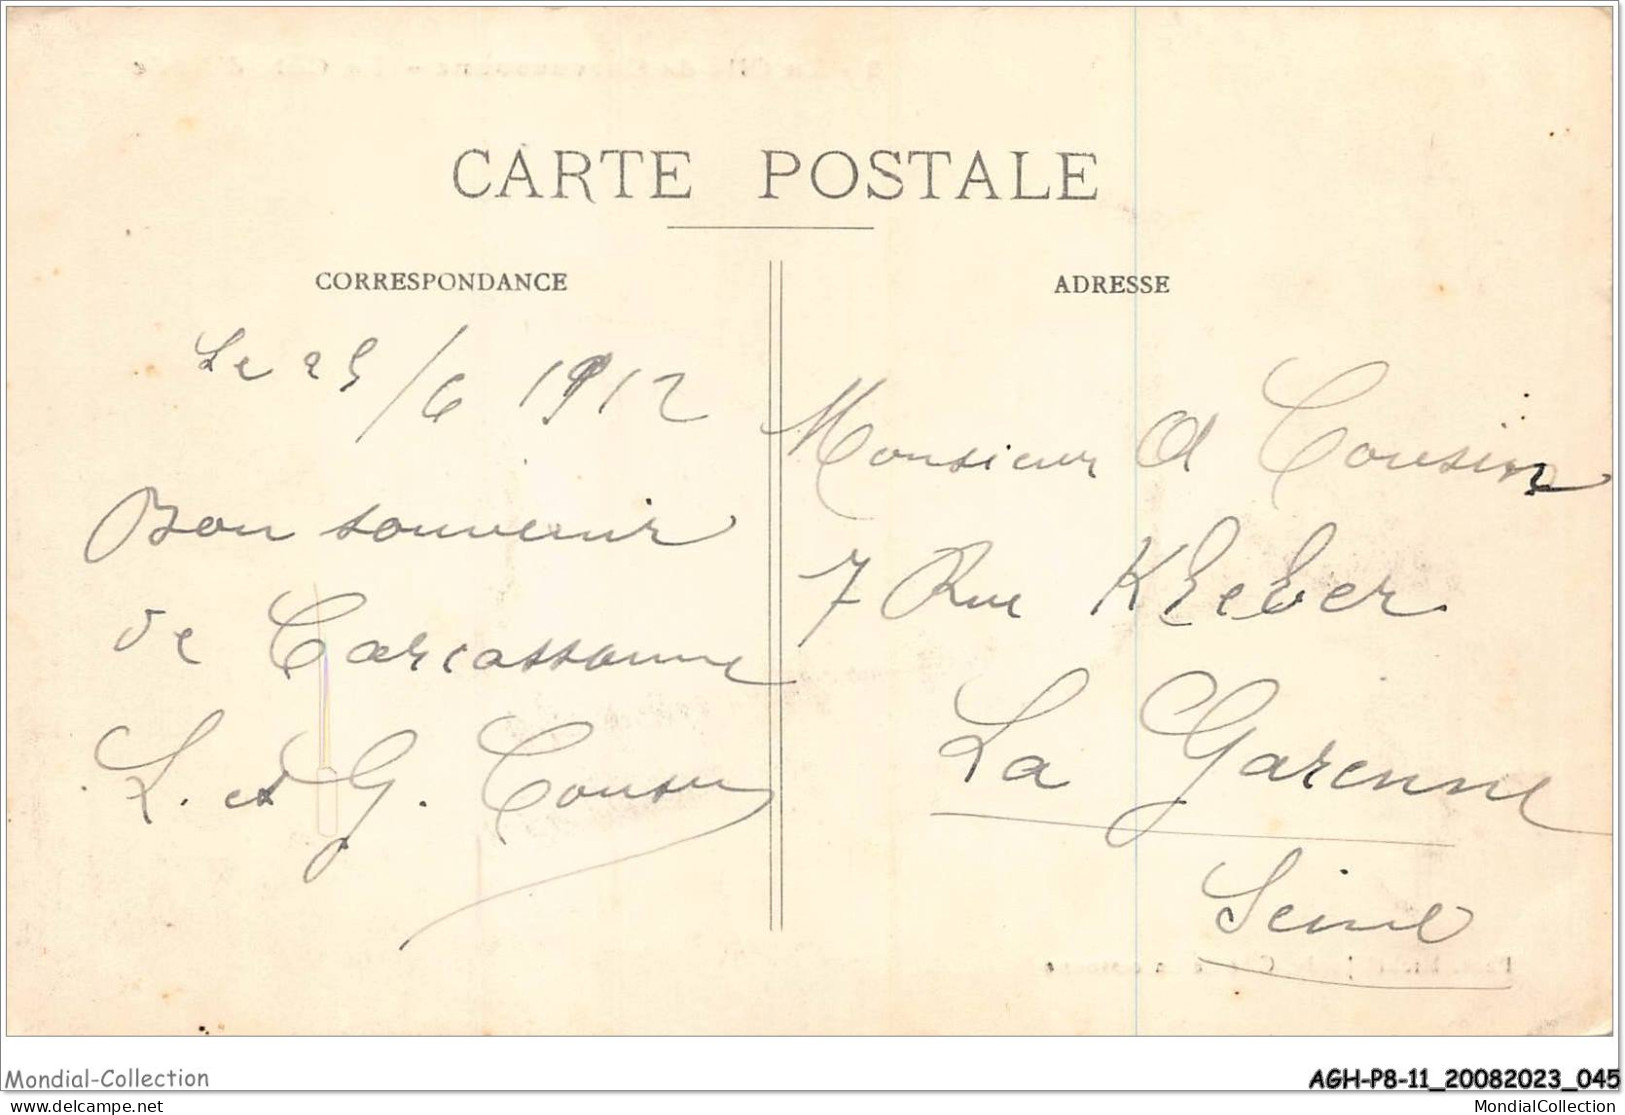 CARTE POSTALE
CORRESPONDANCE
Le 25/6 1912
Bon souvenir
de Carcassonne
L. et G. Cousin
ADRESSE
Monsieur A Cousin
7 Rue Kleber
La Garenne
Seine
Mondial-Collection
delcampe.net
AGH-P8-11_20082023_045
MondialCollection